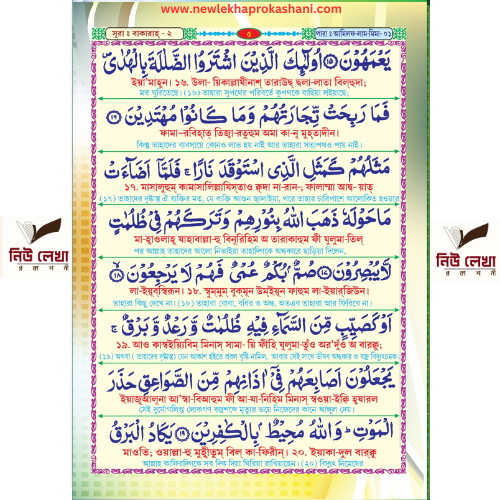 www.newlekhaprokashani.com
সুরা : বাকারাহ্ - ২
৫
পারা : আলিফ-লাম-মিম- ০১
يَعْمَهُوْنَ ⑮ اُولٰٓئِكَ الَّذِيْنَ اشْتَرَوُا الضَّلٰلَةَ بِالْهُدٰى
ইয়া'মাহূন। ১৬. উলা- য়িকাল্লাযীনাশ্ তারাউদ্ব্ দ্বলা-লাতা বিল্‌হুদা;
মত ঘুরিতেছে। (১৬) তাহারা সুপথের পরিবর্তে কুপথকে বাছিয়া লইয়াছে;
فَمَا رَبِحَتْ تِّجَارَتُهُمْ وَمَا كَانُوْا مُهْتَدِيْنَ ⑯
ফামা-রবিহ়াত্ তিজ্বা-রতুহুম অমা কা-নূ মুহ্‌তাদীন।
কিন্তু তাহাদের ব্যবসায়ে কোনও লাভ হয় নাই আর তাহারা সত্যপথও পায় নাই।
مَثَلُهُمْ كَمَثَلِ الَّذِى اسْتَوْقَدَ نَارًا ۚ فَلَمَّآ اَضَآءَتْ
১৭. মাসালুহুম্ কামাসালিল্লাযিস্‌তাও ক্বদা না-রান-; ফালাম্মা আদ্ব- য়াত্
(১৭) তাহাদের দৃষ্টান্ত ঐ ব্যক্তির মত, যে ব্যক্তি আগুন জ্বালাইয়া, পরে তাহার চারিপাশে আলোকিত হওয়ার
مَاحَوْلَهٗ ذَهَبَ اللّٰهُ بِنُوْرِهِمْ وَتَرَكَهُمْ فِىْ ظُلُمٰتٍ
মা-হ়াওলাহূ যাহাবাল্লা-হু বিনূরিহিম অ তারাকাহুম ফী যুলুমা-তিল্
পর আল্লাহ তাহাদের আলো নিভাইয়া তাহাদিগকে অন্ধকারে ছাড়িয়া দিলেন,
لَّايُبْصِرُوْنَ ⑰ صُمٌّۢ بُكْمٌ عُمْىٌ فَهُمْ لَا يَرْجِعُوْنَ ⑱
লা-ইয়ুব্‌স্বিরূন। ১৮. স্বুম্মুম্ বুক্‌মুন উম্‌ইয়ুন ফাহুম লা-ইয়ার্‌জিউন।
তাহারা কিছু দেখে না। (১৮) তাহারা বোবা, বধির ও অন্ধ, অতএব তাহারা আর ফিরিবে না।
اَوْ كَصَيِّبٍ مِّنَ السَّمَآءِ فِيْهِ ظُلُمٰتٌ وَّرَعْدٌ وَّبَرْقٌ ۚ
১৯. আও কাস্বইয়্যিবিম্ মিনাস্ সামা- য়ি ফীহি যুলুমা-তুঁও অর'দুঁও অ বারক্বু;
(১৯) অথবা ( তাহাদের দৃষ্টান্ত) যেন আকাশ হইতে প্রবল বৃষ্টি নামিল, আবার সেই সাথে ভীষণ অন্ধকার ও বজ্র বিদ্যুৎচমক
يَجْعَلُوْنَ اَصَابِعَهُمْ فِىْٓ اٰذَانِهِمْ مِّنَ الصَّوَاعِقِ حَذَرَ
ইয়াজ্ব্‌আলূনা আস্বা-বিআহুম ফী আ-যা-নিহিম মিনাস্ স্বওয়া-ইক্বি হ়াযারল
সেই দুর্যোগলিপ্ত লোকগণ বজ্রশব্দে মৃত্যুর ভয়ে নিজেদের কানে আঙ্গুল দেয়।
الْمَوْتِ ؕ وَاللّٰهُ مُحِيْطٌۢ بِالْكٰفِرِيْنَ ⑲ يَكَادُ الْبَرْقُ
মাওতি; ওয়াল্লা-হু মুহ়ীতুম্ বিল্ কা-ফিরীন্। ২০. ইয়াকা-দুল বারক্বু
আল্লাহ কাফিরদিগকে সব দিক দিয়া ঘিরিয়া রাখিয়াছেন। (২০) বিদ্যুৎ নিমেষের
নিউ লেখা
প্রকাশনী
নিউ লেখা
প্রকাশনী